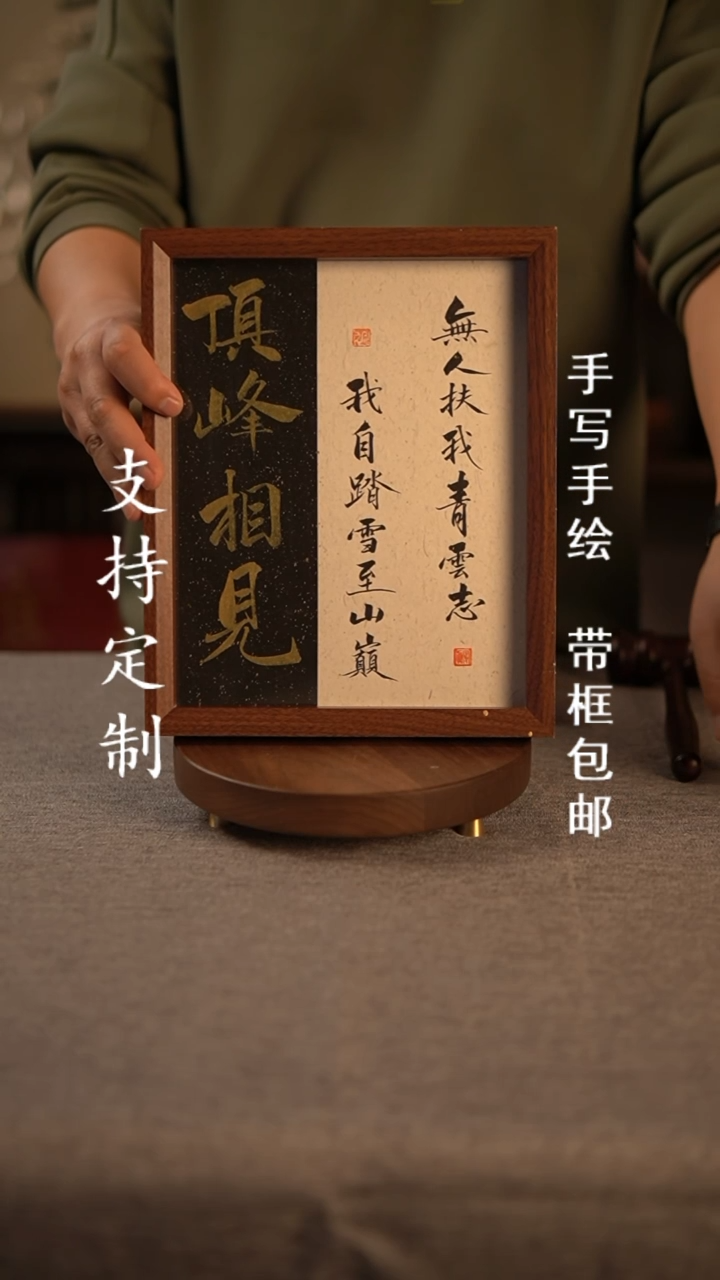 無人扶我青雲志
我自踏雪至山巔
頂峰相見
手写手绘 带框包邮
支持定制